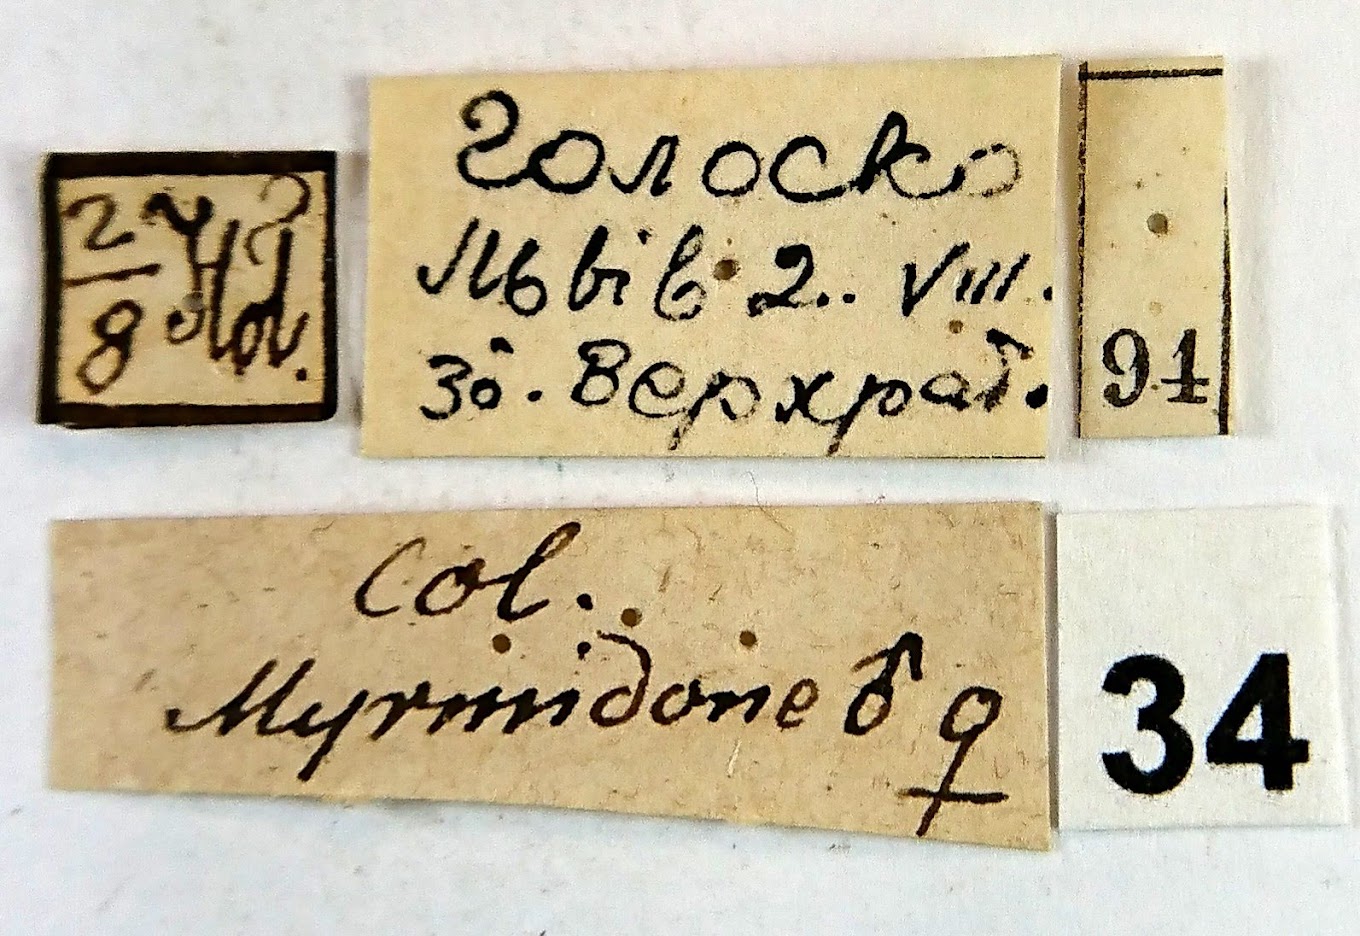 2
8
Hol.
Голоско
Львів 2. VIII.
Зб. Верхрат.
91
Col.
Myrmidone ♂ ♀
34